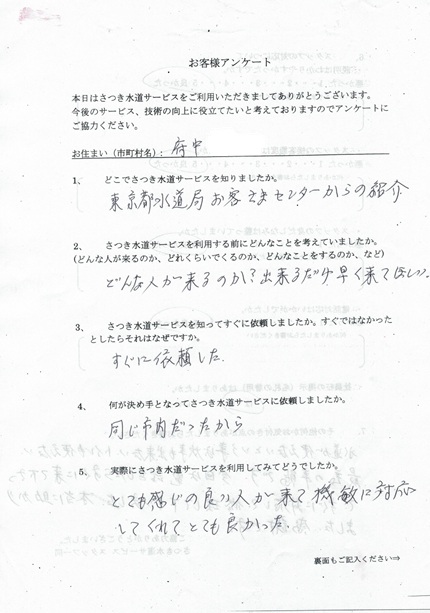 お客様アンケート
本日はさつき水道サービスをご利用いただきましてありがとうございます。
今後のサービス、技術の向上に役立てたいと考えておりますのでアンケートに
ご協力ください。
お住まい（市町村名）： 府中
1、 どこでさつき水道サービスを知りましたか。
東京都水道局お客さまセンターからの紹介
2、 さつき水道サービスを利用する前にどんなことを考えていましたか。
(どんな人が来るのか、どれくらいでくるのか、どんなことをするのか、など)
どんな人が来るのか？出来るだけ早く来てほしい。
3、 さつき水道サービスを知ってすぐに依頼しましたか。すぐではなかった
としたらそれはなぜですか。
すぐに依頼した。
4、 何が決め手となってさつき水道サービスに依頼しましたか。
同じ市内だったから
5、 実際にさつき水道サービスを利用してみてどうでしたか。
とても感じの良い人が来て機敏に対応
してくれてとても良かった。
裏面もご記入ください⇒